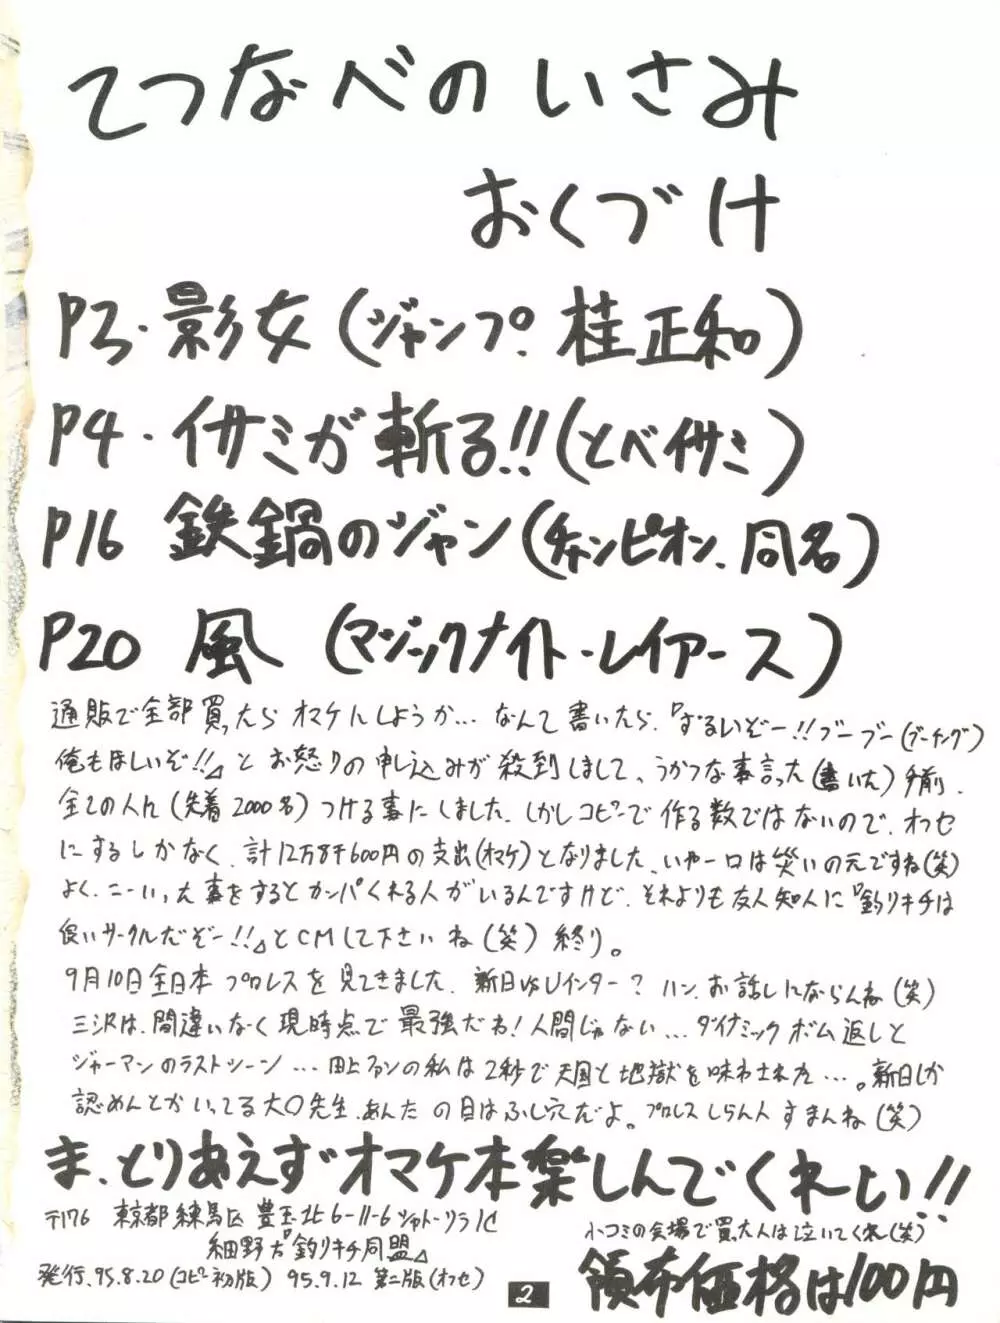 てつなべのいさみ
おくづけ
P3・影女(ジャンプ.桂正和)
P4・イサミが斬る!!(とべイサミ)
P16 鉄鍋のジャン(チャンピオン、同名)
P20 風 (マジックナイト・レイアース)
通販で全部買ったらオマケにしようか…なんて書いたら、『ずるいぞー!!ブーブー(ブーイング)
俺もほしいぞ!!』とお怒りの申し込みが殺到しまして、うかつな事言った(書いた)手前、
全ての人に(先着2000名)つける事にしました。しかしコピーで作る数ではないので、オフセ
にするしかなく、計12万8千600円の支出(オマケ)となりました、いやー口は災いの元ですね(笑)
よく、こーいった事をするとカンパくれる人がいるんですけど、それよりも友人知人に『釣りキチは
良いサークルだぞー!!』とCMして下さいね(笑)終り。
9月10日全日本プロレスを見てきました、新日vsUインター?ハン、お話しにならんね(笑)
三沢は、間違いなく現時点で最強だね!人間じゃない…ダイナミックボム返しと
ジャーマンのラストシーン…田上ファンの私は2秒で天国と地獄を味わされた…。新日しか
認めんとかいってる大〇先生、あんたの目はふし穴だよ。プロレスしらん人すまんね(笑)
ま、とりあえずオマケ本楽しんでくれーい!!
〒176 東京都練馬区豊玉北6-11-6シャトーソラ1C
細野方『釣りキチ同盟』
小コミの会場で買った人は泣いてくれ(笑)
発行.95.8.20(コピー初版) 95.9.12 第二版(オフセ)
2
領布価格は100円